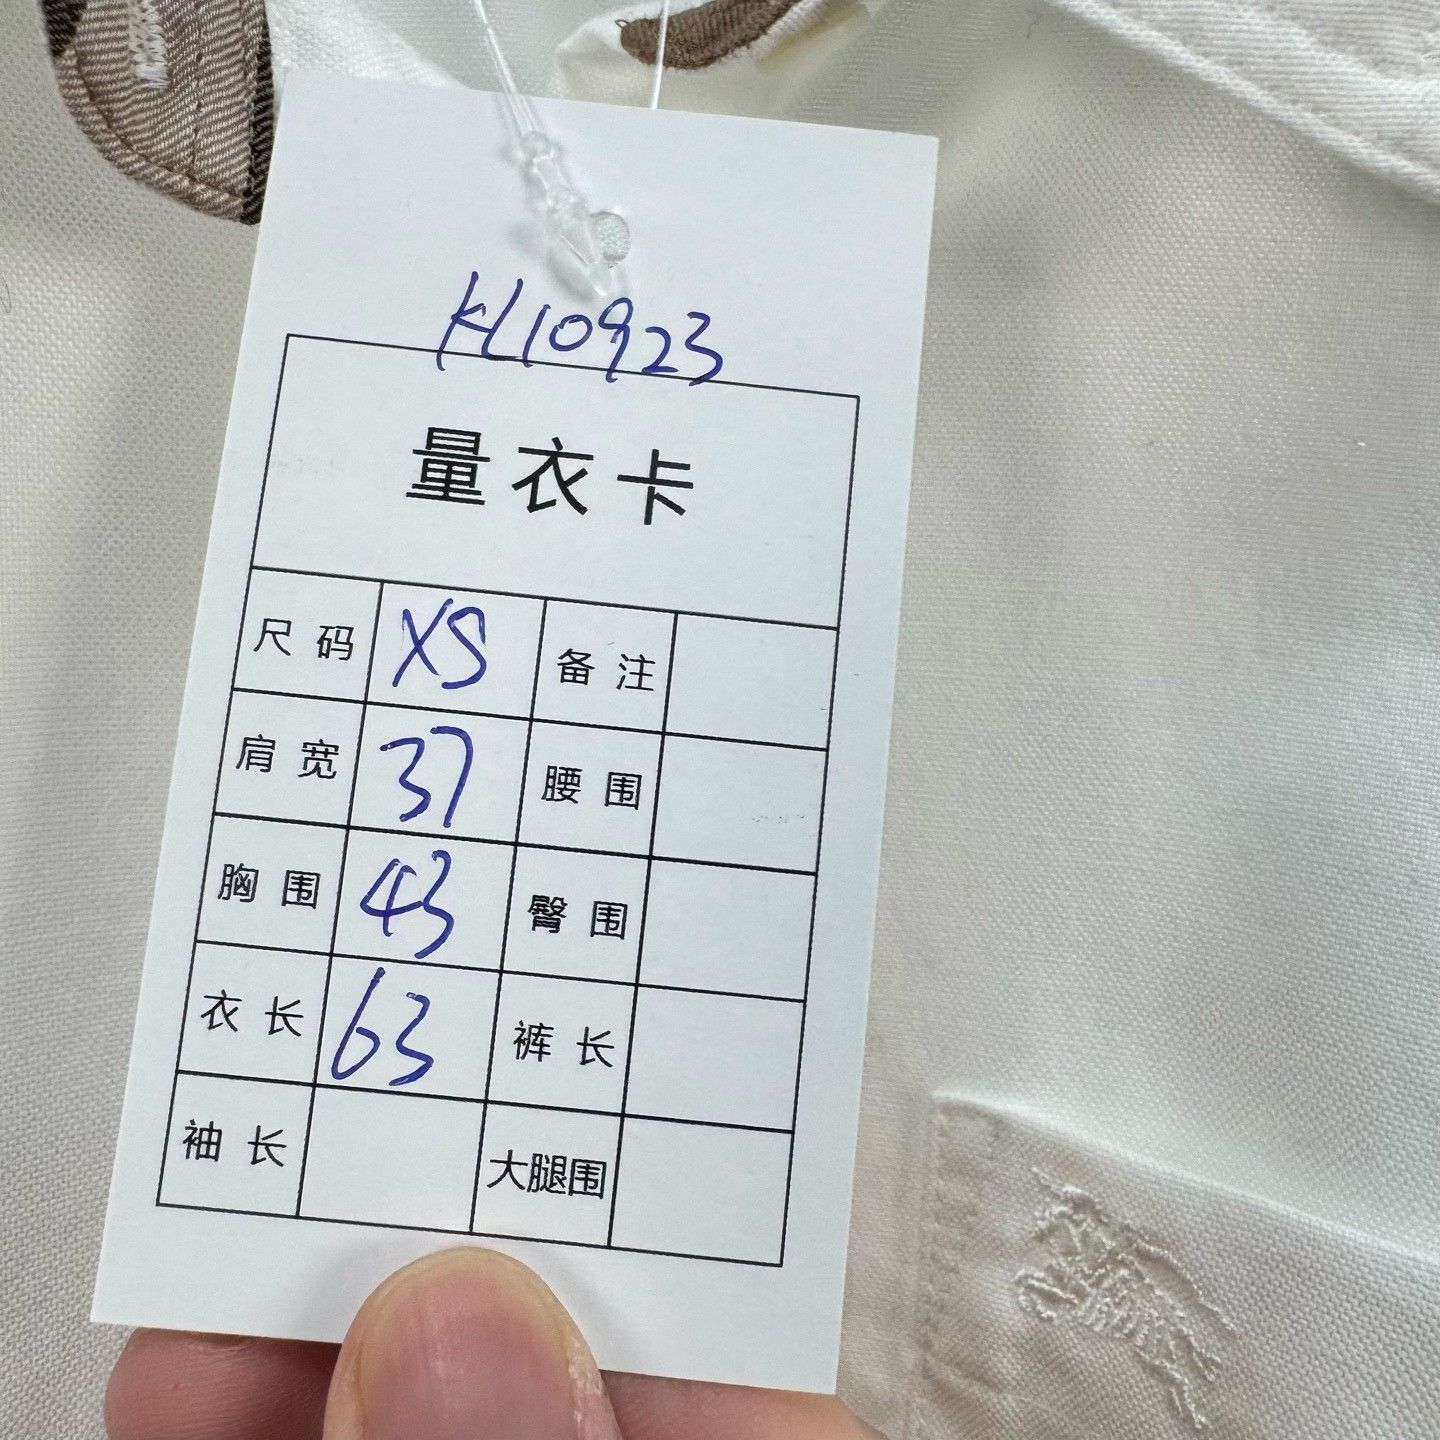 KL10923
量衣卡
尺码 XS 备注
肩宽 37 腰围
胸围 43 臀围
衣长 63 裤长
袖长 大腿围